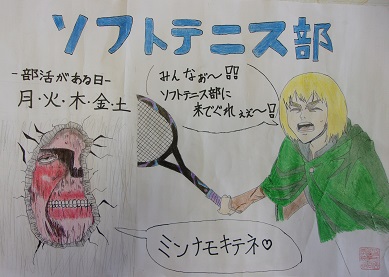 ソフトテニス部
-部活がある日-
月・火・木・金・土
みんなぉ〜!!
ソフトテニス部に
来でぐれぇぇ〜!!
ミンナモキテネ♡